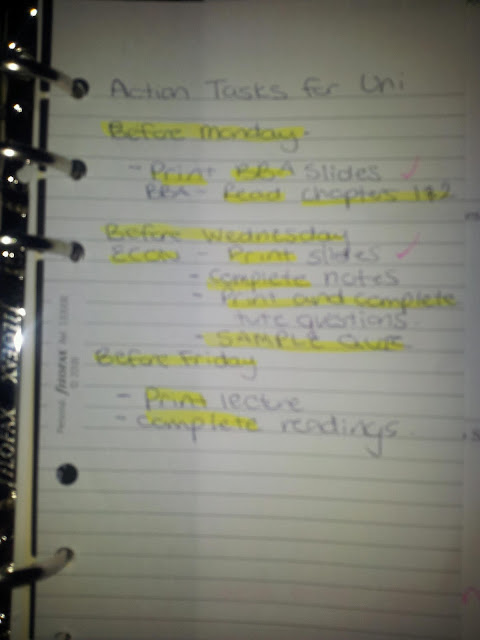 Action Tasks for Uni
Before Monday.
- Print BBA slides ✓
BBA - Read chapters 1&2
Before Wednesday
ECON - Print slides ✓
- Complete notes
- Print and complete
tute questions.
- SAMPLE
Before Friday
- Print lecture
- Complete readings.
Personal filofax
© 2008
filofax